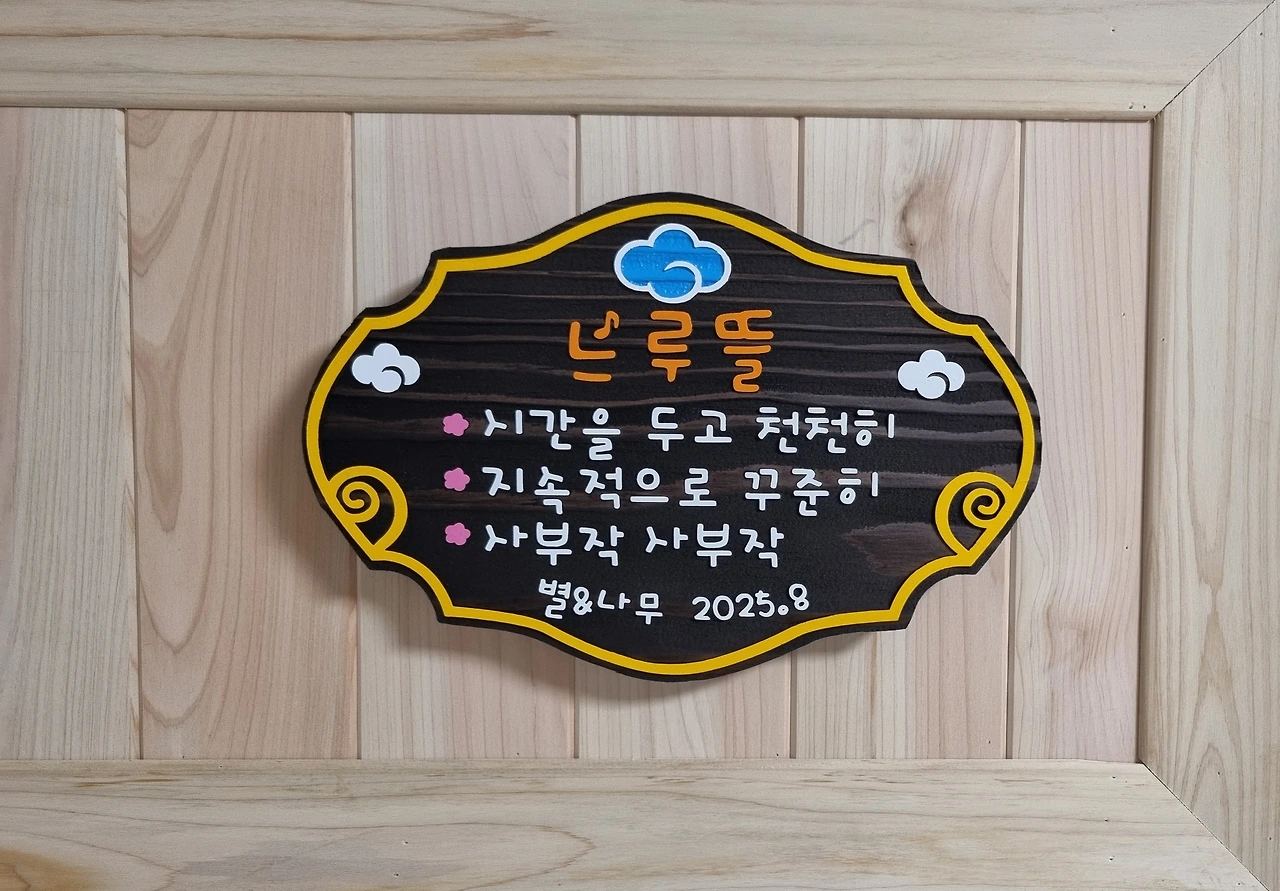 느루뜰
시간을 두고 천천히
지속적으로 꾸준히
사부작 사부작
별&나무 2025.8